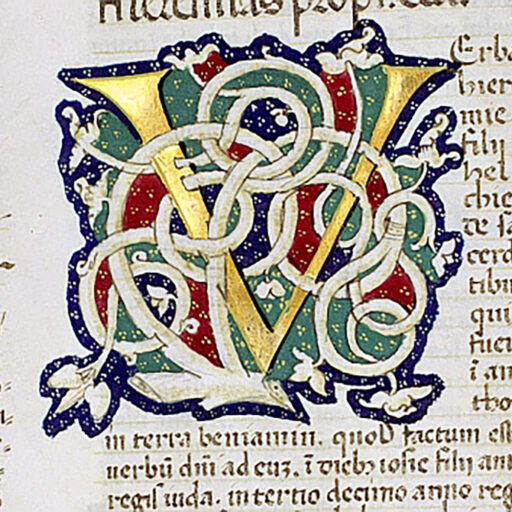 Hieremias prophetau
V Erba
hier
mie
filii
hel
chie
de sa
cerd
tibu
qui
fuer
ī an
tho
in terra beniamin. quod factum est
uerbū dn̄i ad eu3. ī dieb3 iosie filij am
regis iuda. in tertio decimo anno reg